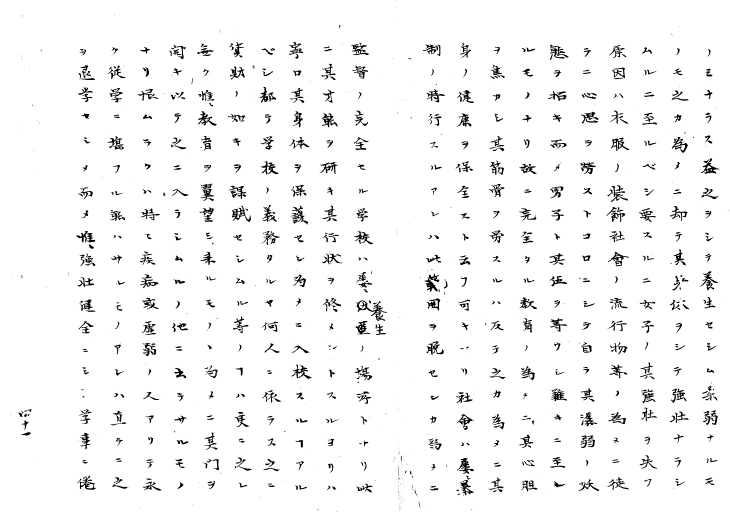 ノミナラス益之ヲシテ養生セシム柔弱ナルモ
ノモ之カ為メニ却テ其形体ヲシテ強壮ナラシ
ムルニ至ルベシ要スルニ女子ノ其強壮ヲ失フ
原因ハ衣服ノ装飾社會ノ流行物等ノ為メニ徒
ラニ心思ヲ労ストコロニシテ自ラ其潺弱ノ
態ヲ招キ而メ男子ト其伍ヲ等ウシ難キニ至ル
ルモノナリ故ニ完全タル教育ノ為メニ其心胆
ヲ焦カシ其筋骨ヲ労スルハ反テ之カ為メニ其
身ノ健康ヲ保全スト云フ可キナリ社會ハ屡
制ノ時行スルアレハ此範囲ヲ脱センカ為メニ
監督ノ完全セル学校ハ養生ノ場所トナリ此
ニ其才能ヲ研キ其行状ヲ修メントスルヨリハ
寧ロ其身体ヲ保護セン為メニ入校スルヿアル
ベシ都テ学校ノ義務タルヤ何人ニ依ラス之ニ
貨財ノ如キヲ課賦セシムル等ノヿハ更ニ之レ
無ク惟教育ヲ翼望シ来ルモノヽ為メニ其門ヲ
開キ以テ之ニ入ラシムルノ他ニ出ラサルモノ
ナリ恨ムラクハ時て疾病或虚弱ノ人アリテ永
ク從学ニ堪フル能ハサレモノアレハ直チニ之
ヲ退学セシメ而メ惟強壮健全ニシ学事ニ倦
四十一